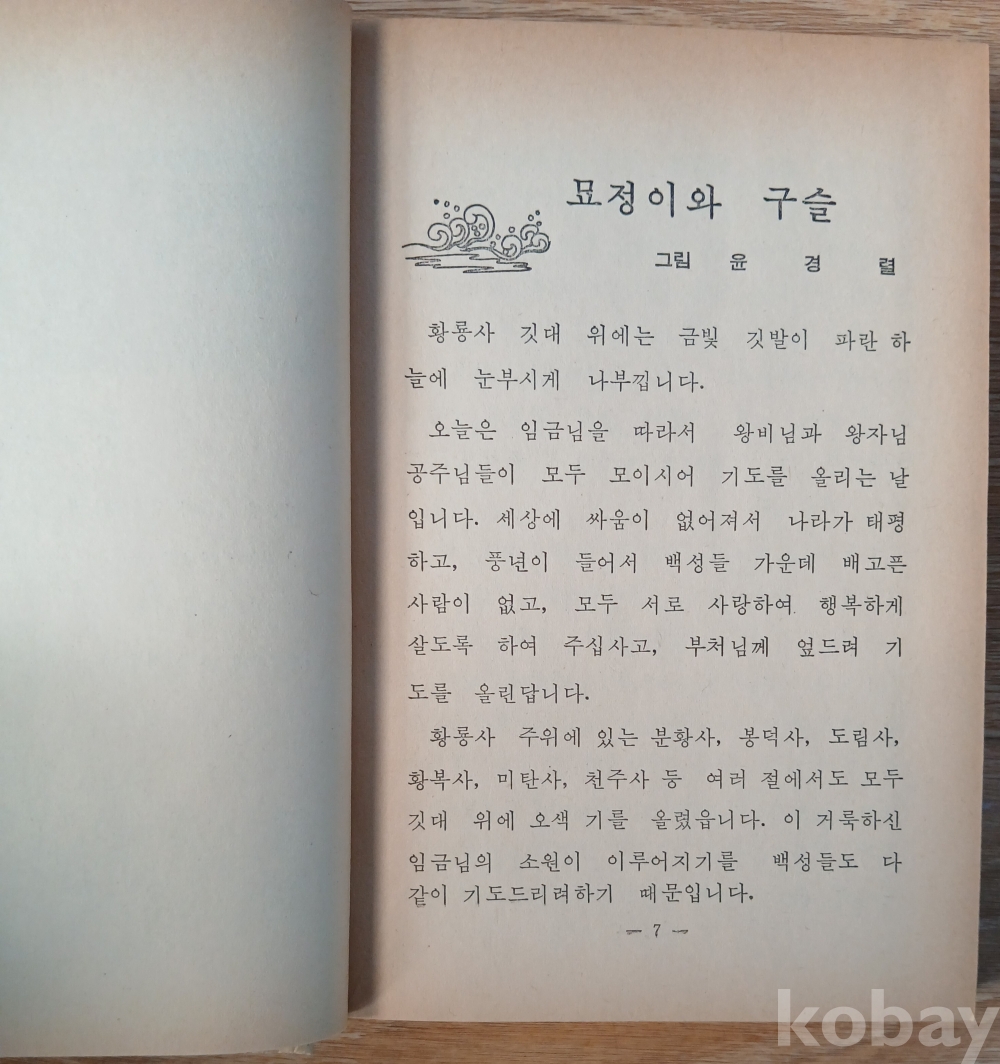 묘정이와 구슬
그림 윤 경 렬
황룡사 깃대 위에는 금빛 깃발이 파란 하
늘에 눈부시게 나부낍니다.
오늘은 임금님을 따라서 왕비님과 왕자님
공주님들이 모두 모이시어 기도를 올리는 날
입니다. 세상에 싸움이 없어져서 나라가 태평
하고, 풍년이 들어서 백성들 가운데 배고픈
사람이 없고, 모두 서로 사랑하여 행복하게
살도록 하여 주십사고, 부처님께 엎드려 기
도를 올린답니다.
황룡사 주위에 있는 분황사, 봉덕사, 도림사,
황복사, 미탄사, 천주사 등 여러 절에서도 모두
깃대 위에 오색 기를 올렸읍니다. 이 거룩하신
임금님의 소원이 이루어지기를 백성들도 다
같이 기도드리려하기 때문입니다.
— 7 —
kobay